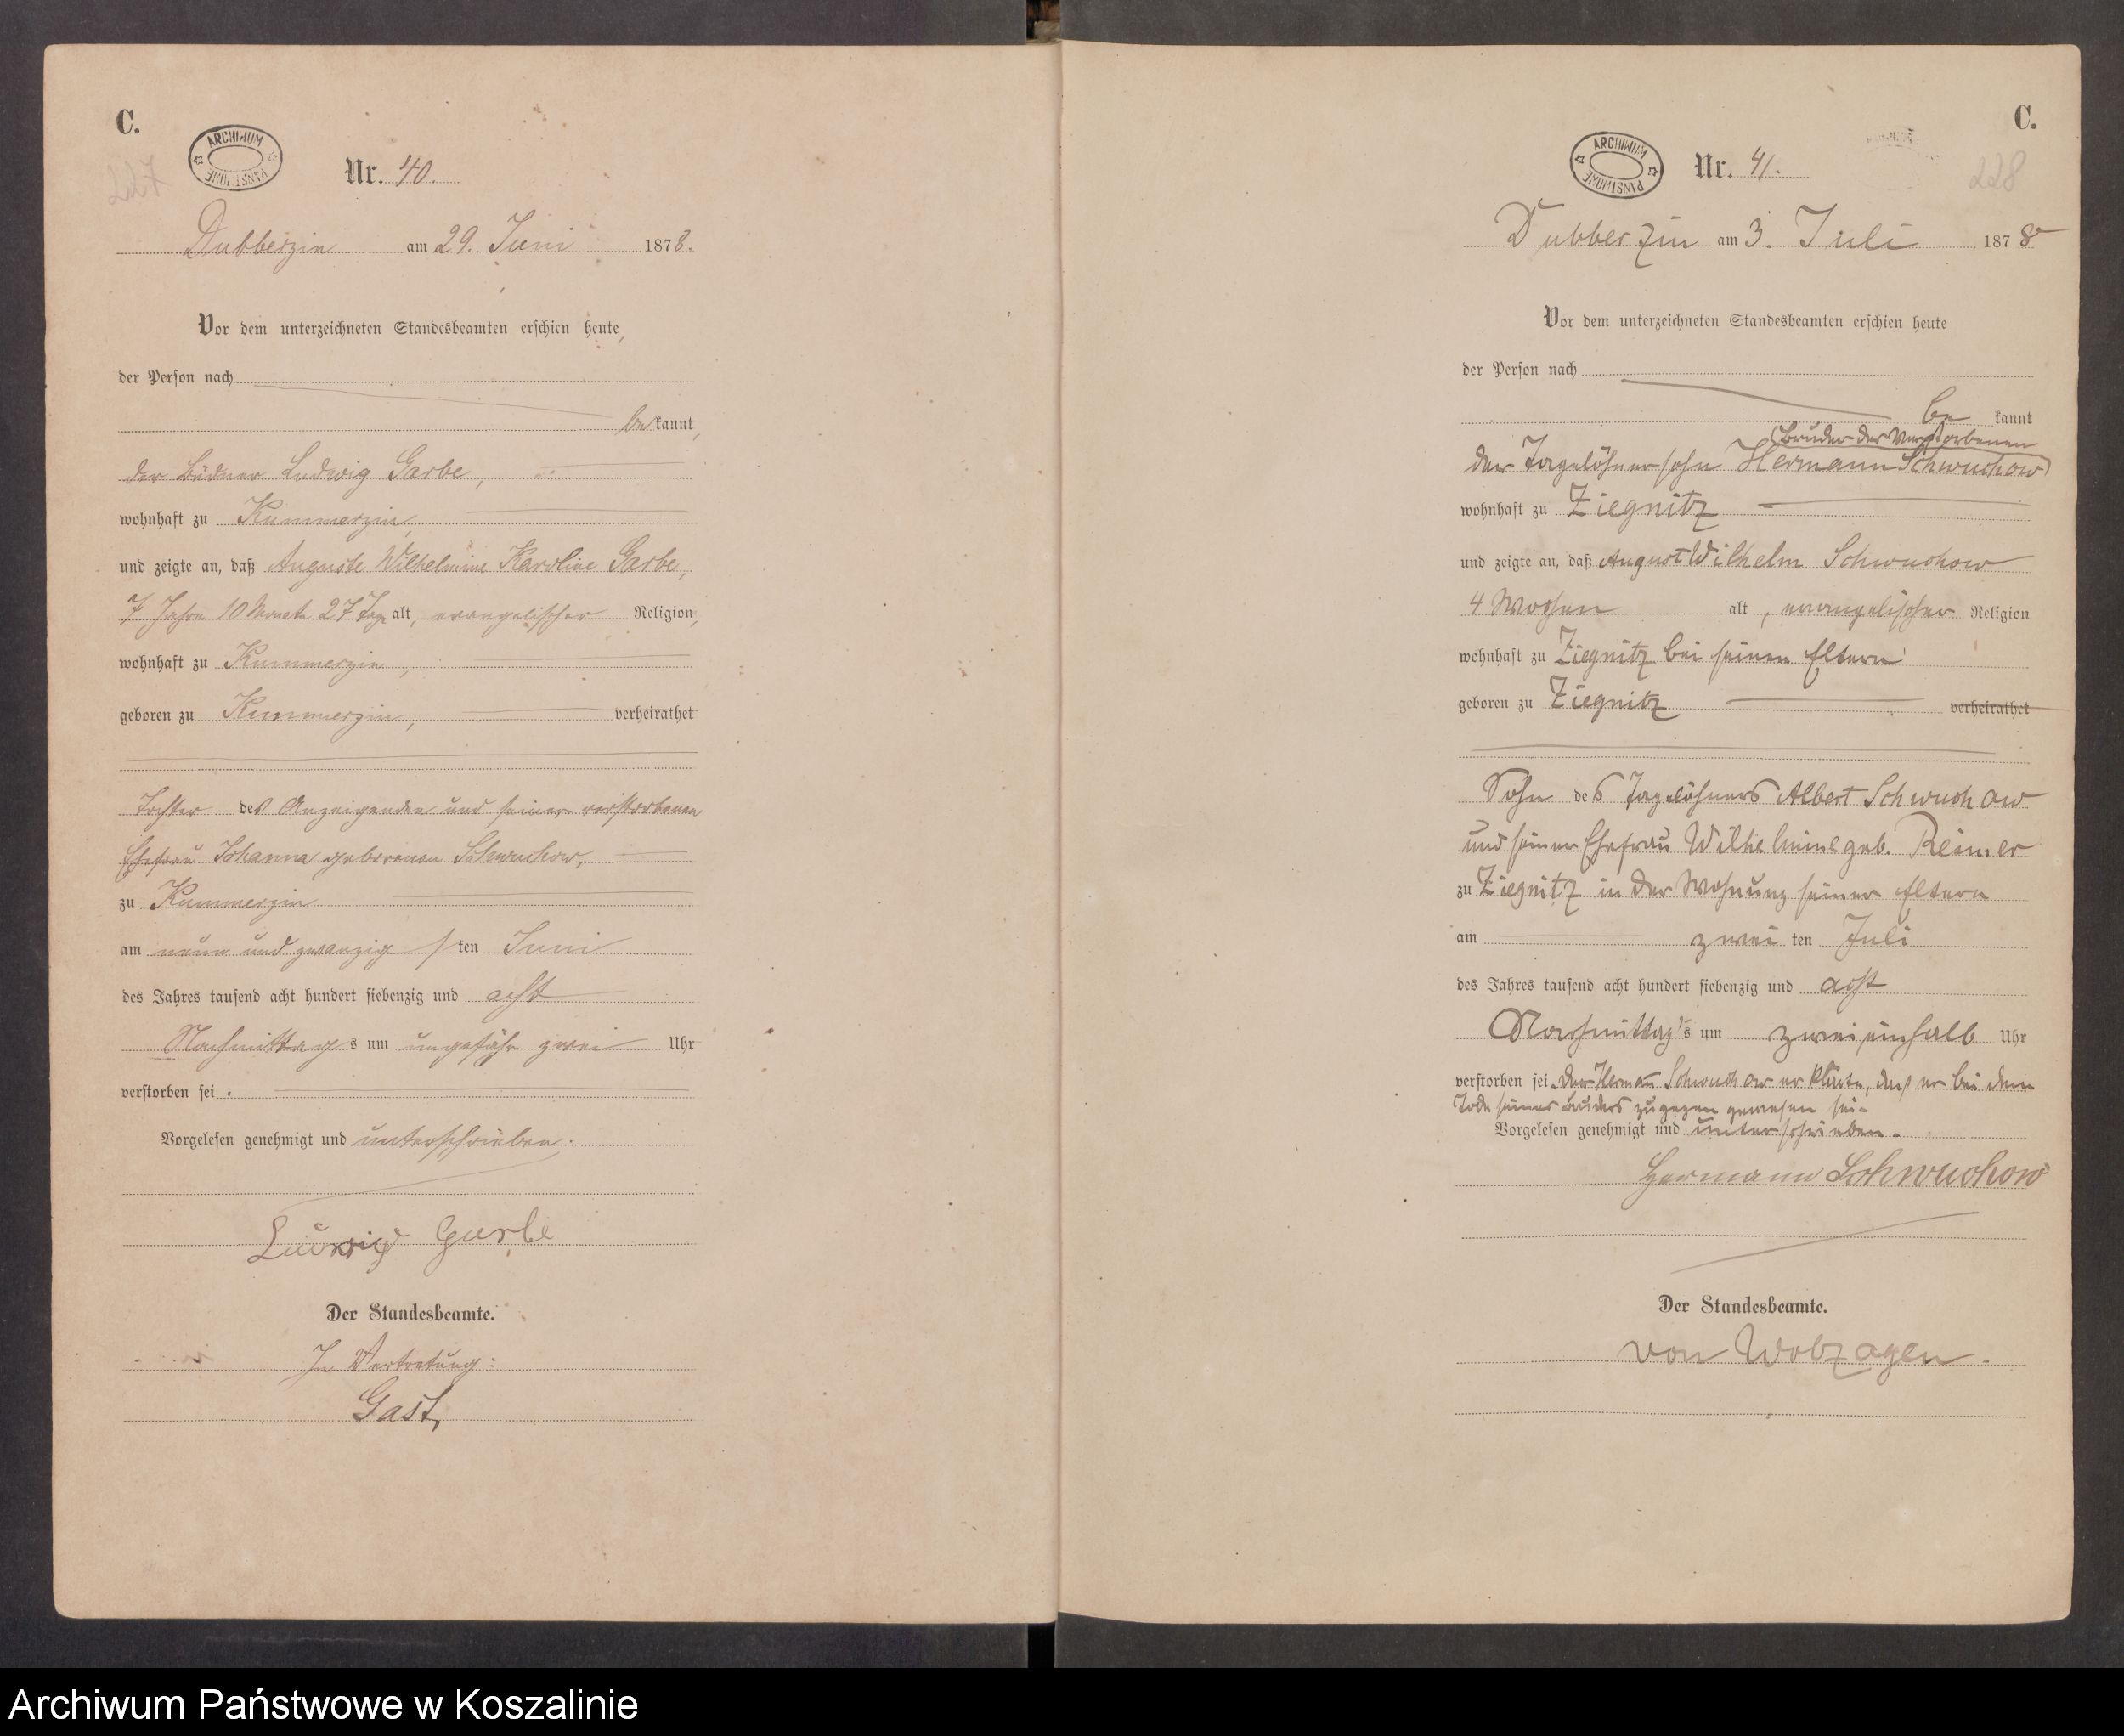 C.
ARCHIWUM PAŃSTWOWE
Nr. 40.
Dubberzin am 29. Juni 1878.
Vor dem unterzeichneten Standesbeamten erschien heute,
der Person nach
bekannt,
der Büdner Ludwig Garbe,
wohnhaft zu Kummerzin,
und zeigte an, daß Auguste Wilhelmine Karoline Garbe,
7 Jahre 10 Monate 27 Tage alt, evangelischer Religion,
wohnhaft zu Kummerzin,
geboren zu Kummerzin, verheirathet
Tochter des Anzeigenden und seiner verstorbenen
Ehefrau Johanna geborenen Schwuchow,
zu Kummerzin
am neun und zwanzigsten Juni
des Jahres tausend acht hundert siebenzig und acht
Nachmittags um ungefähr zwei Uhr
verstorben sei.
Vorgelesen genehmigt und unterschrieben.
Ludwig Garbe
Der Standesbeamte.
In Vertretung:
Gast,
C.
ARCHIWUM PAŃSTWOWE
228
Nr. 41.
Dubberzin am 3. Juli 1878
Vor dem unterzeichneten Standesbeamten erschien heute
der Person nach
be kannt
(Bruder des Verstorbenen
der Tagelöhnersohn Hermann Schwuchow)
wohnhaft zu Ziegnitz
und zeigte an, daß August Wilhelm Schwuchow
4 Wochen alt, evangelischer Religion
wohnhaft zu Ziegnitz bei seinen Eltern
geboren zu Ziegnitz verheirathet
Sohn des Tagelöhners Albert Schwuchow
und seiner Ehefrau Wilhelmine geb. Reimer
zu Ziegnitz in der Wohnung seiner Eltern
am zwei ten Juli
des Jahres tausend acht hundert siebenzig und acht
Nachmittag's um zweieinhalb Uhr
verstorben sei. Der Herman Schwuchow erklärte, daß er bei dem
Tode seines Bruders zugegen gewesen sei.
Vorgelesen genehmigt und unterschrieben.
Hermann Schwuchow
Der Standesbeamte.
von Wobzagen.
Archiwum Państwowe w Koszalinie